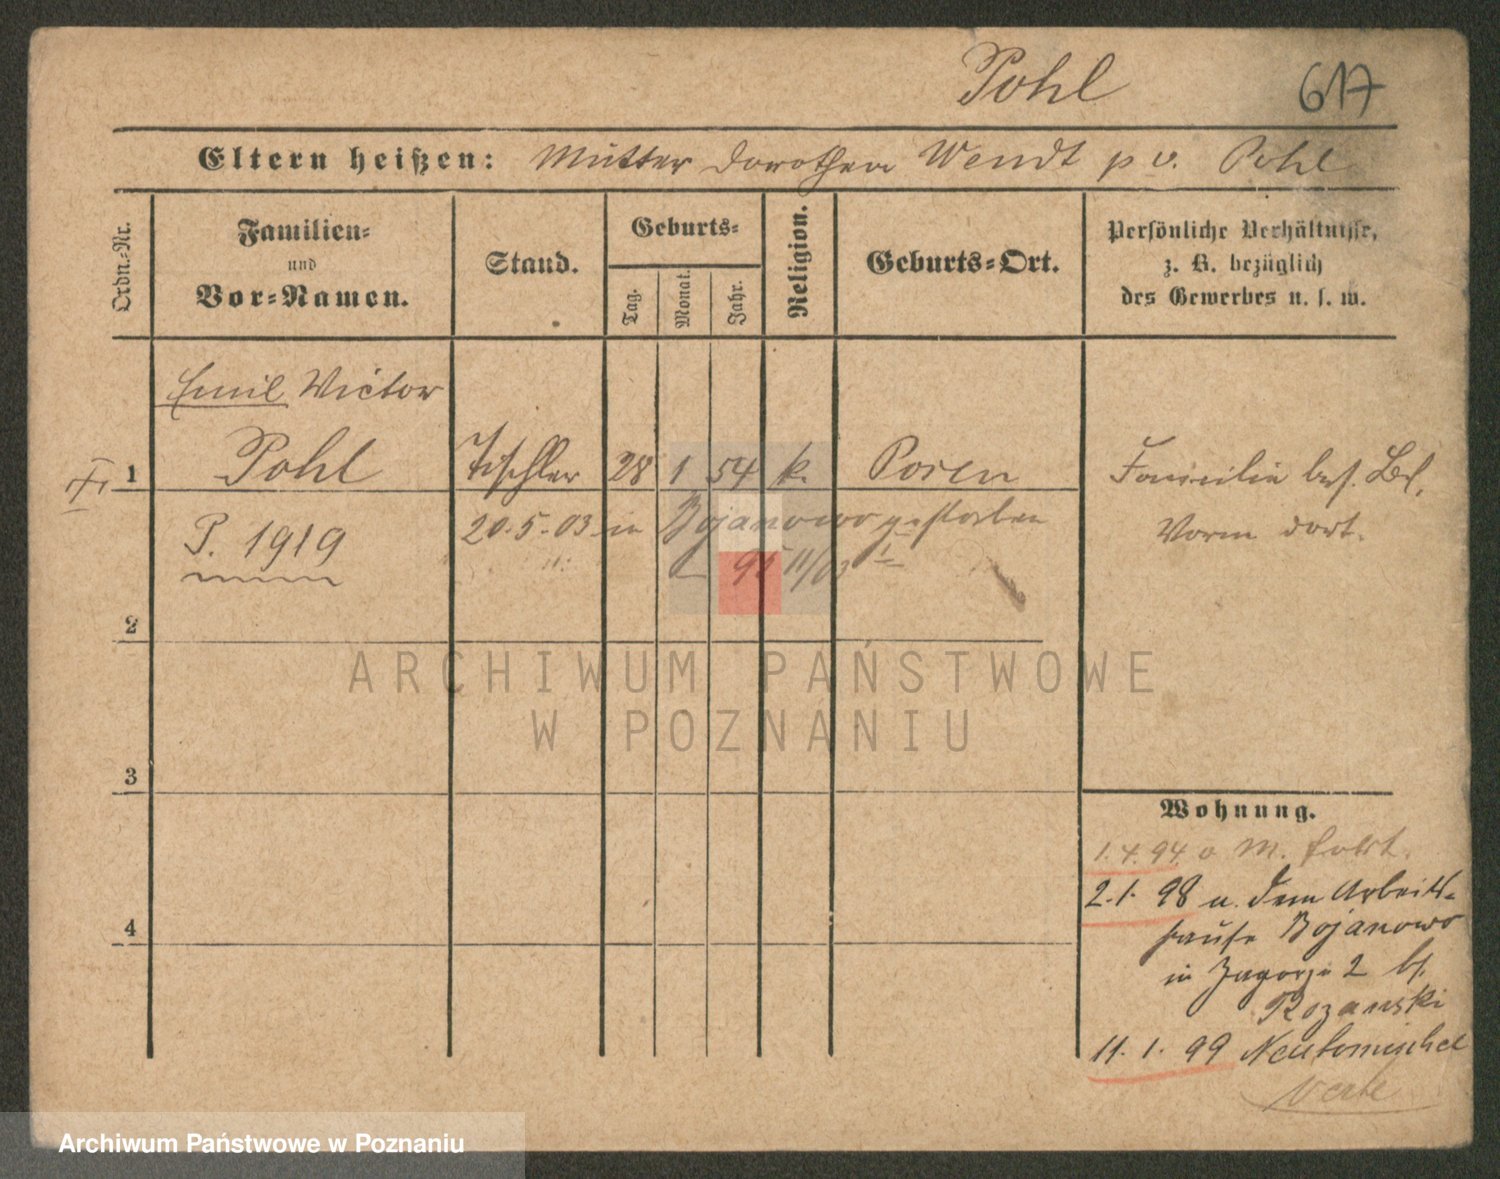 Pohl 617
Eltern heißen: Mutter Dorothea Wendt p v. Pohl
Ordn.-Nr.
Familien-
und
Vor-Namen.
Stand.
Geburts-
Tag.
Monat.
Jahr.
Religion.
Geburts-Ort.
Persönliche Verhältnisse,
z. B. bezüglich
des Gewerbes u. s. w.
Emil Victor
1 Pohl Tischler 28 1 54 k. Posen
P. 1919
20.5.03 in Bojanowo gestorben
11/03
Familie bes. Bl.
Worm dort.
2
3
4
Wohnung.
1.4.94 v M. fort.
2.1.98 u. dem Arbeits-
hause Bojanowo
in Zagorze 2 bf.
Rozanski
11.1.99 Neutomischel
Verte
ARCHIWUM PAŃSTWOWE
W POZNANIU
Archiwum Państwowe w Poznaniu